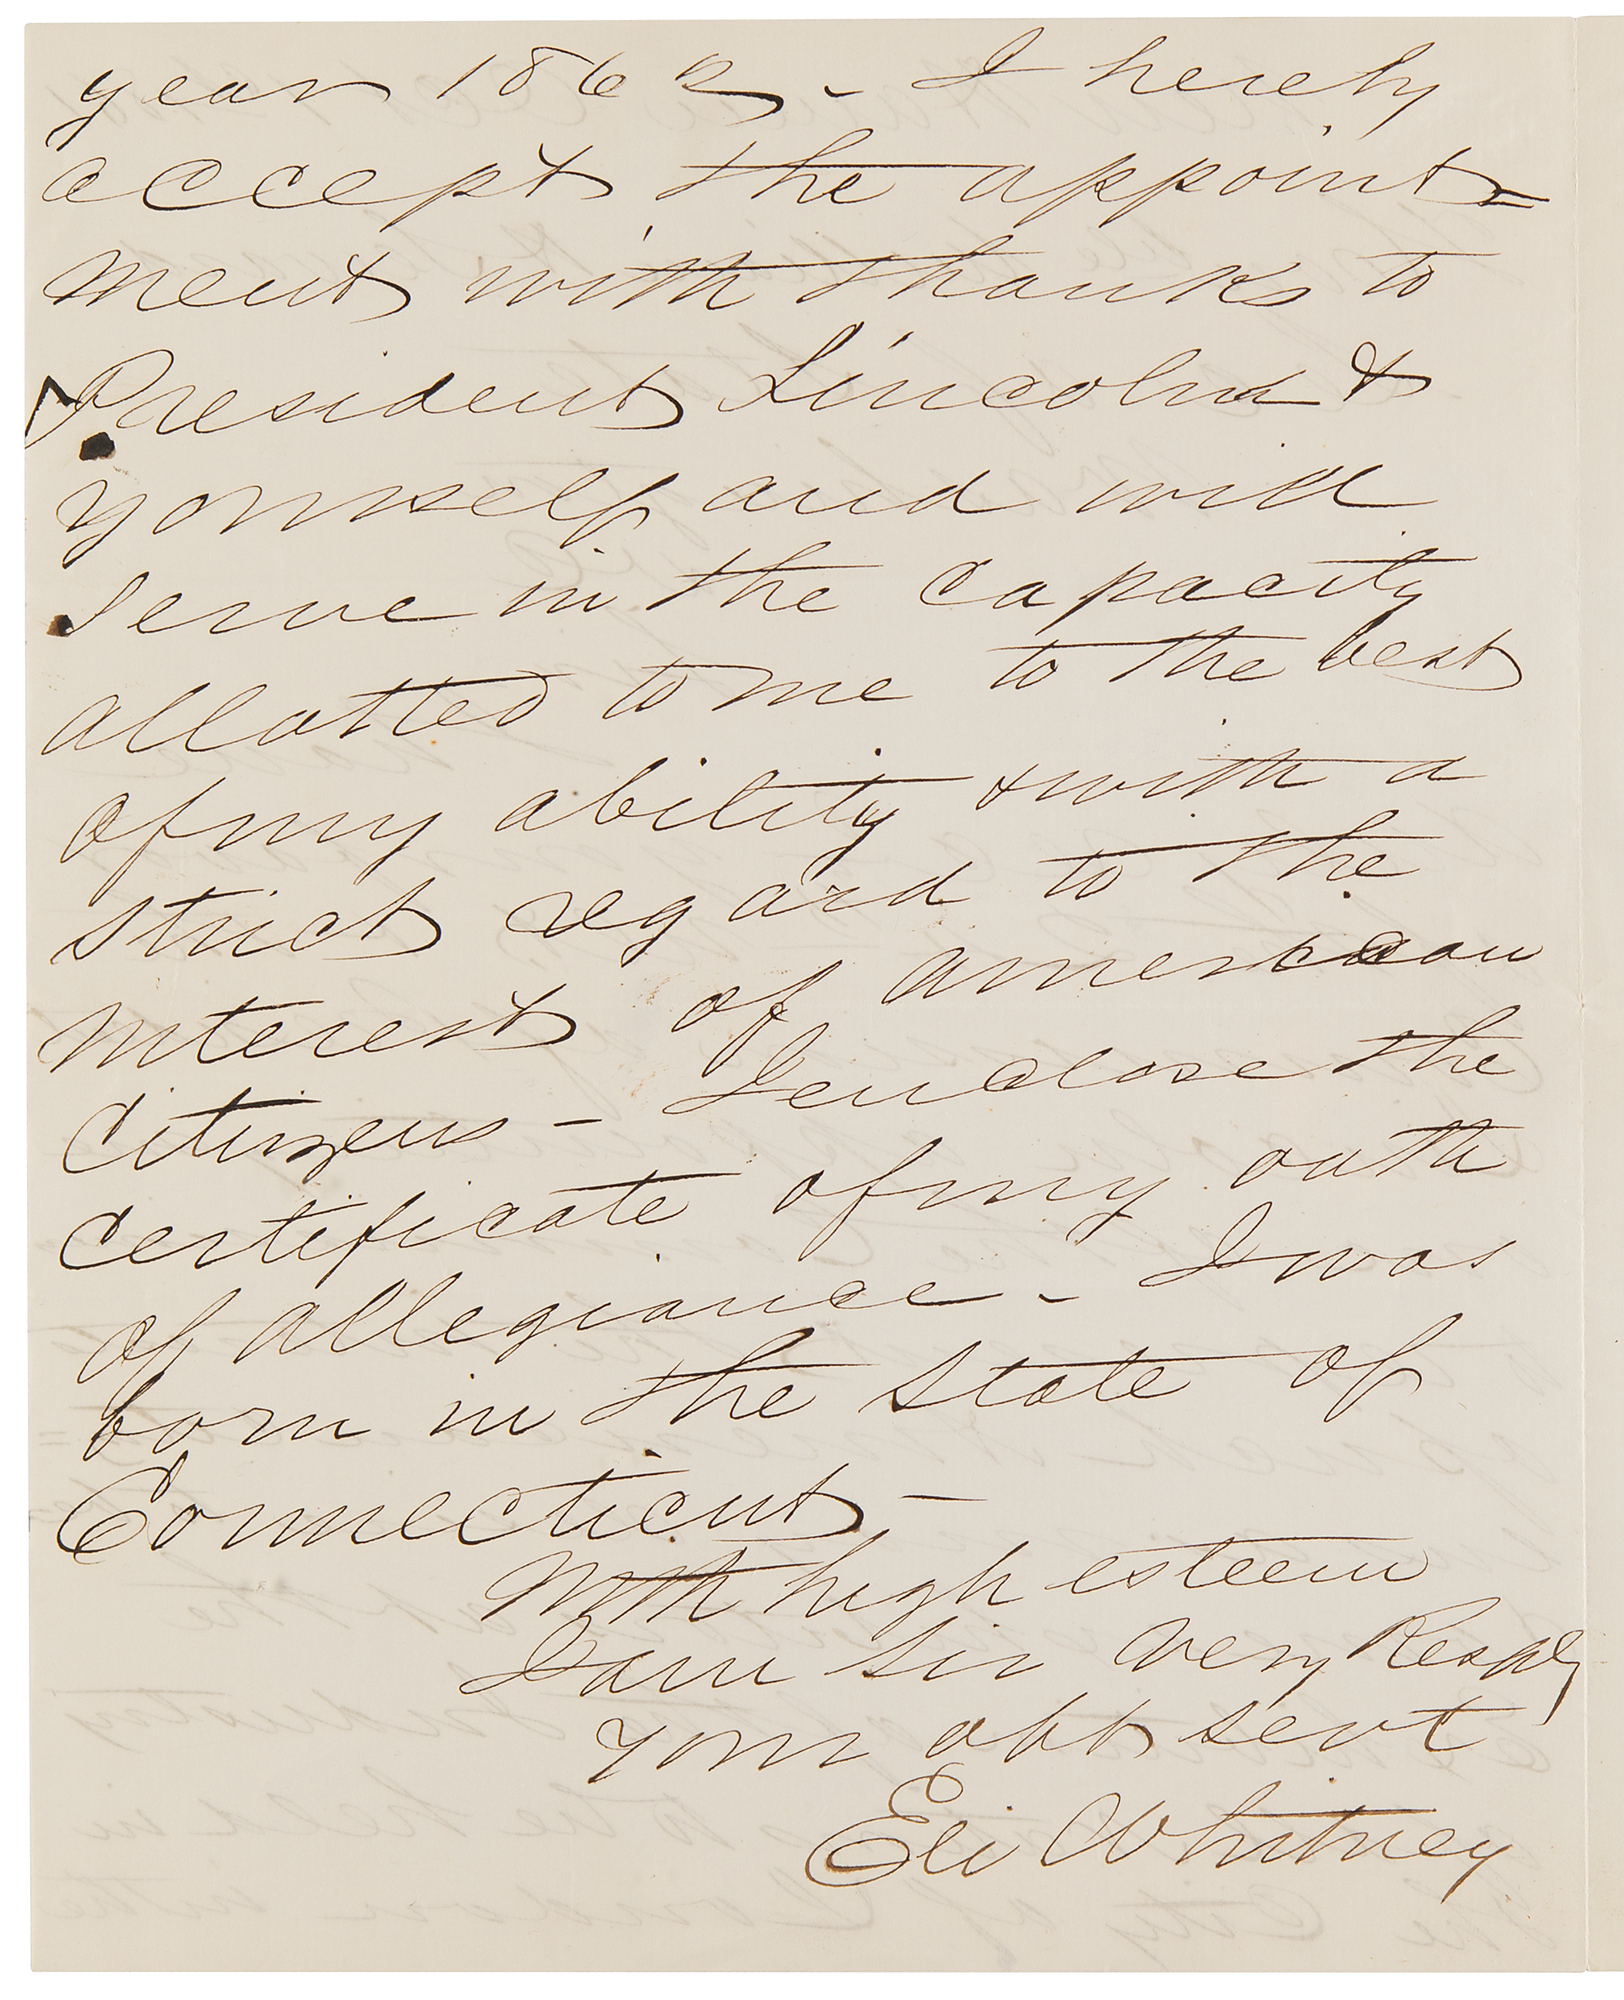 year 1862 - I hereby
accept the appoint=
ment with thanks to
President Lincoln &
yourself and will
serve in the capacity
allotted to me to the best
of my ability & with a
strict regard to the
interest of american
Citizens - I enclose the
Certificate of my oath
of allegiance - I was
born in the State of
Connecticut -
With high esteem
I am Sir Very Resply
your obt servt
Eli Whitney